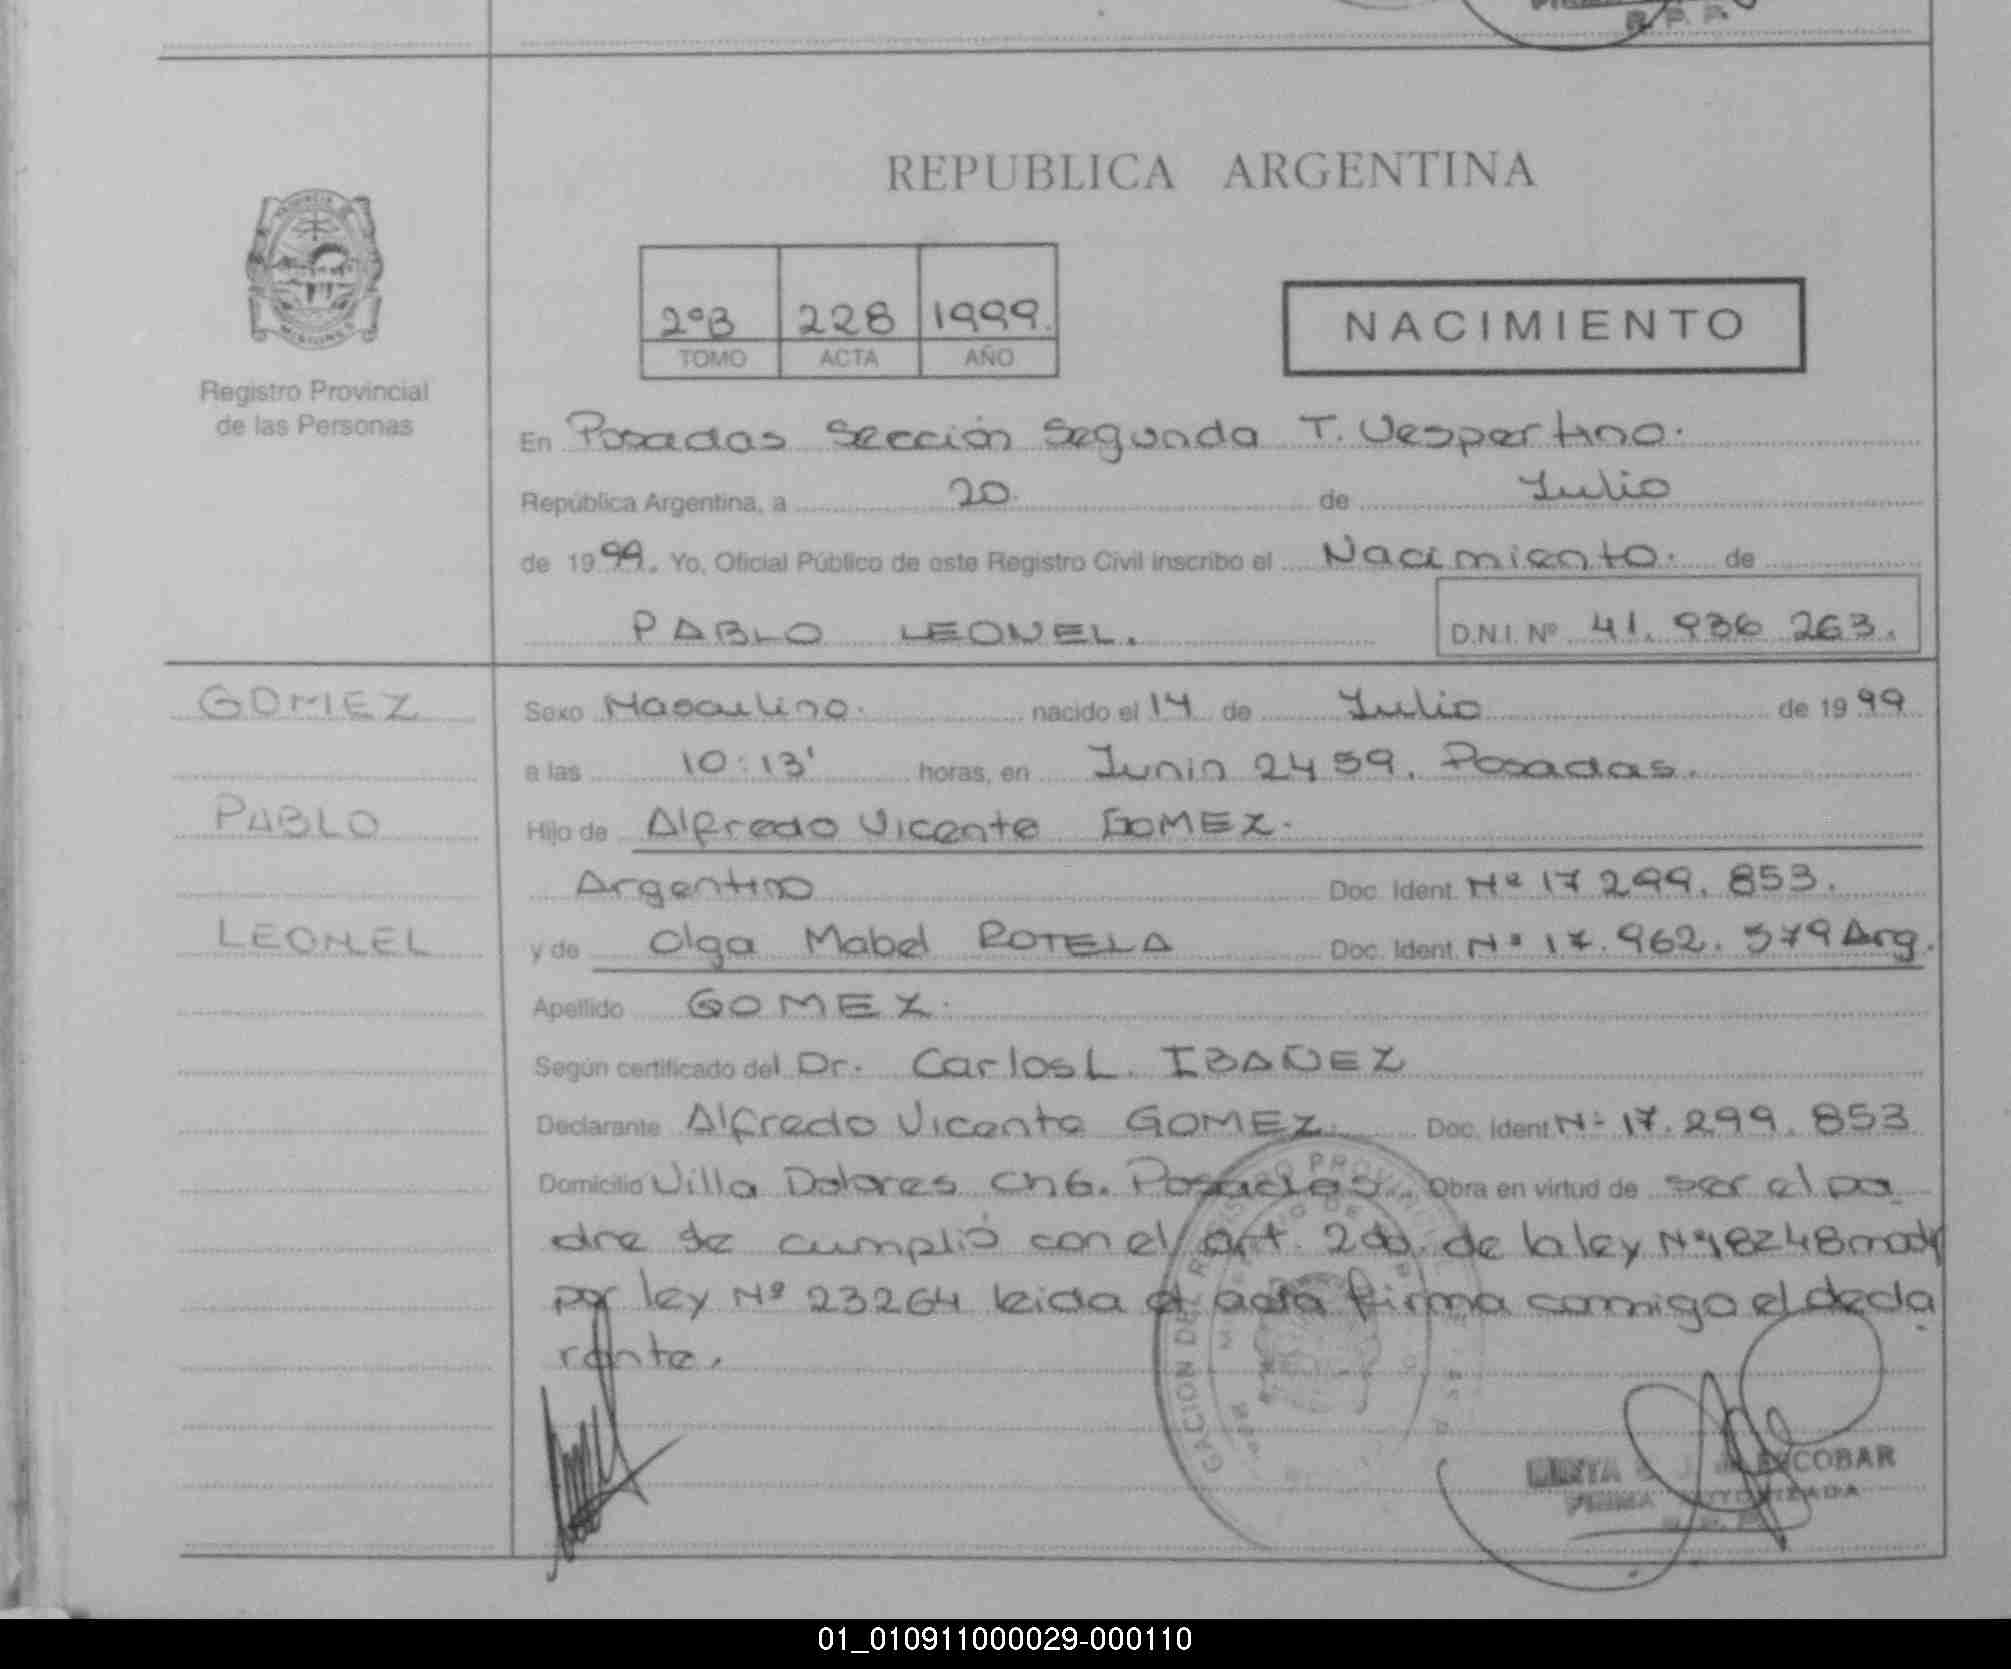 R. P. P.
REPUBLICA ARGENTINA
2ºB 228 1999.
TOMO ACTA AÑO
NACIMIENTO
Registro Provincial
de las Personas
En Posadas Sección Segunda T. Vespertino.
República Argentina, a 20. de Julio
de 1999. Yo, Oficial Público de este Registro Civil inscribo el Nacimiento. de
PABLO LEONEL. D.N.I. Nº 41. 936 263.
GOMEZ
PABLO
LEONEL
Sexo Masculino. nacido el 14 de Julio de 1999
a las 10:13' horas, en Junin 2459. Posadas.
Hijo de Alfredo Vicente GOMEZ.
Argentino Doc. Ident. Nº 17 299. 853.
y de Olga Mabel ROTELA Doc. Ident. Nº 17. 962. 579 Arg.
Apellido GOMEZ.
Según certificado del Dr. Carlos L. IBAÑEZ
Declarante Alfredo Vicente GOMEZ. Doc. Ident Nº 17. 299. 853
Domicilio Villa Dolores Ch6. Posadas. Obra en virtud de ser el pa
dre se cumplió con el art. 2do. de la ley Nº 18248 modf
por ley Nº 23264 leida el acta firma conmigo el decla
rante.
ESCOBAR
FIRMA AUTORIZADA
01_010911000029-000110